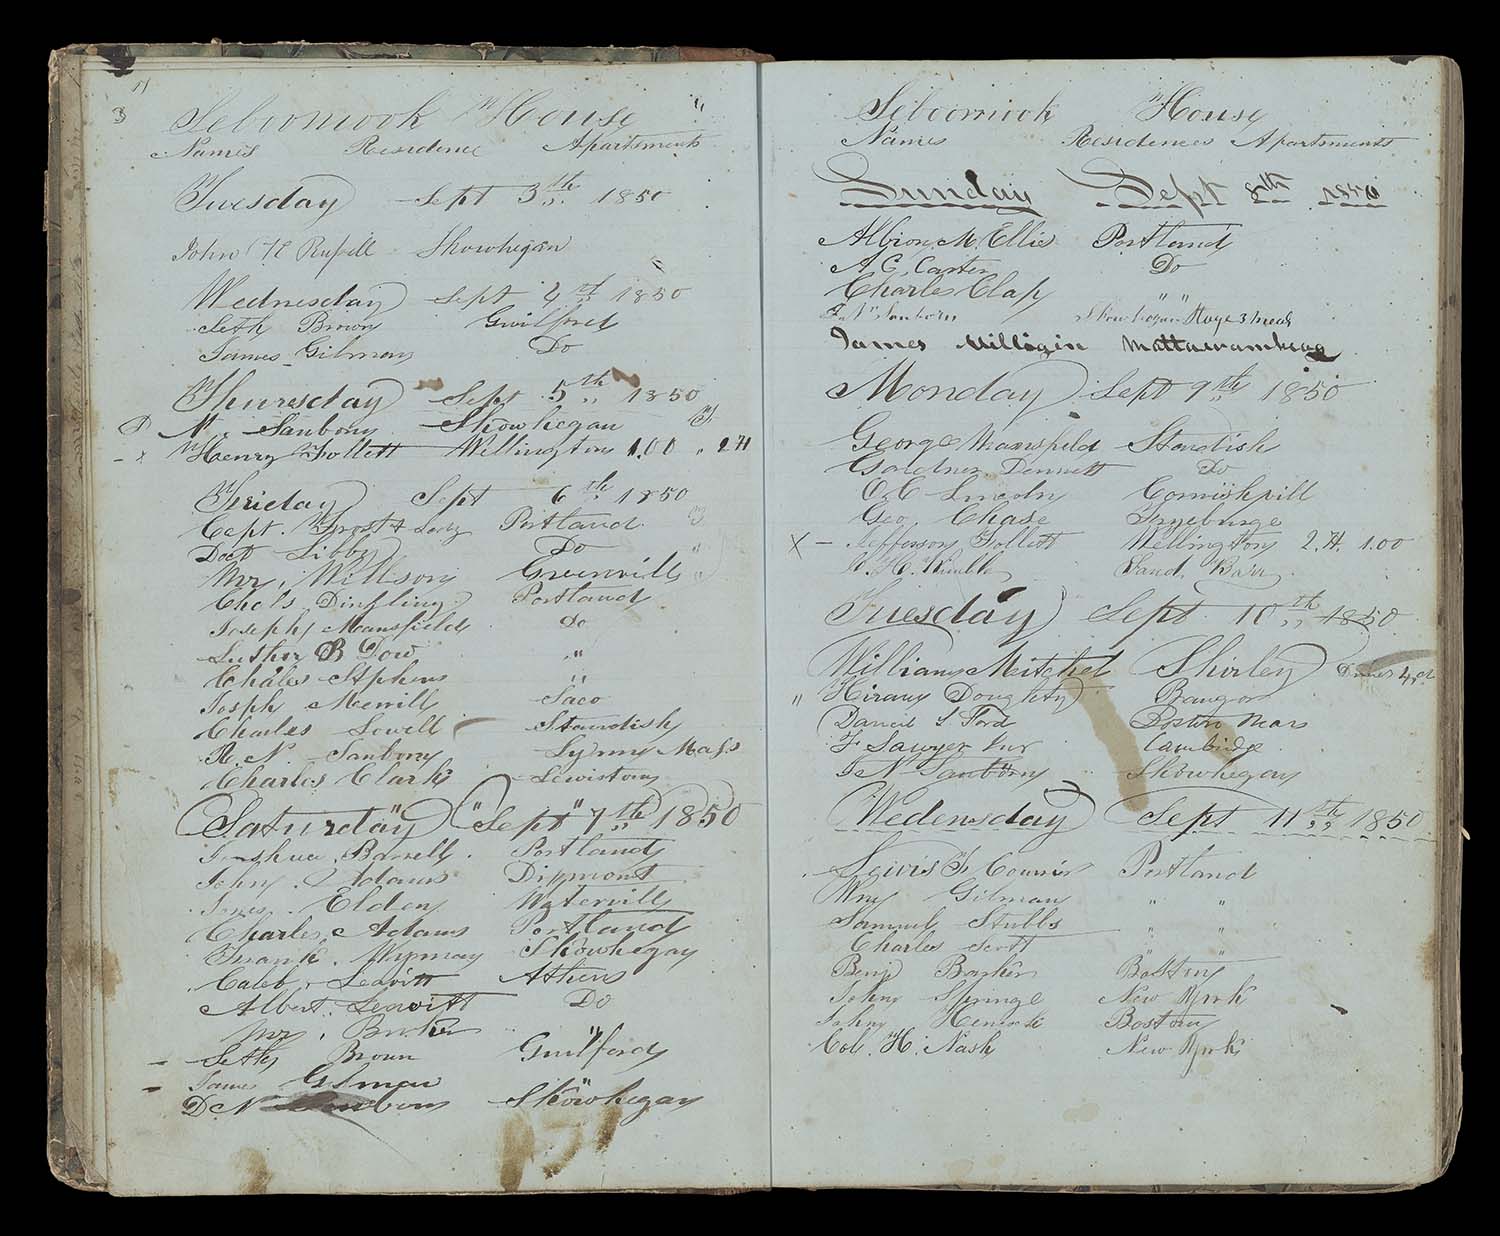 3
Seboomook House "
Names Residence Apartements
Tuesday Sept 3th 1850
John H Russell Skowhegan
Wednesday Sept 4th 1850
Seth Brown Guilford
James Gilman Do
Thursday Sept 5th 1850
N. Sanborn Skowhegan
- x Henry Follett Wellington 1.00 2 H
Friday Sept 6th 1850
Capt. Frost & Lady Portland 3
Doct Libby Do "
Mr. Willson Greenvill "
Chals Dinfling Portland
Joseph Mansfield Do
Luther B Dow "
Chales Stphens "
Josph Merrill Saco
Charles Lowell Standish
R. N. Sanborn Lynn Mass
Charles Clark Lewiston
Saturday Sept 7th 1850
Joshua Barrell Portland
John Adams Dixmont
Jones Elden Watervill
Charles Adams Portland
Frank Skowhegan
Caleb Leavitt Athens
Albert Leavitt Do
Mr.
- Seth Brown Guilford
- James Gilman
D N Sanborn Skowhegan
Seboomook House
Names Residences Apartments
Sunday Sept 8th 1850
Albion M. Ellis Portland
A. C. Carter Do
Charles Clap " "
Sanborn Skowhegan Stage 3 meals
James Milligin Mattawamkeag
Monday Sept 9th 1850
George Mansfield Standish
Gardner Dennett Do
O. C Lincoln Cornishvill
Geo Chase Fryeburge
X - Jefferson Follett Wellington 2.H. 1.00
H. Kimble Sand Bar
Tuesday Sept 10th 1850
William Mitchel Shirley
" Hiram Doughty Bangor
Daniel S Ford Boston Mass
F Sawyer Jnr Cambidge
N Sanborn Skowhegan
Wedensday Sept 11th 1850
Lewis F Portland
Wm Gilman " "
Samuel Stubbs " "
Charles Scott " "
Benj Barker Boston
John Springe New York
John Boston
Col. H. Nash New York